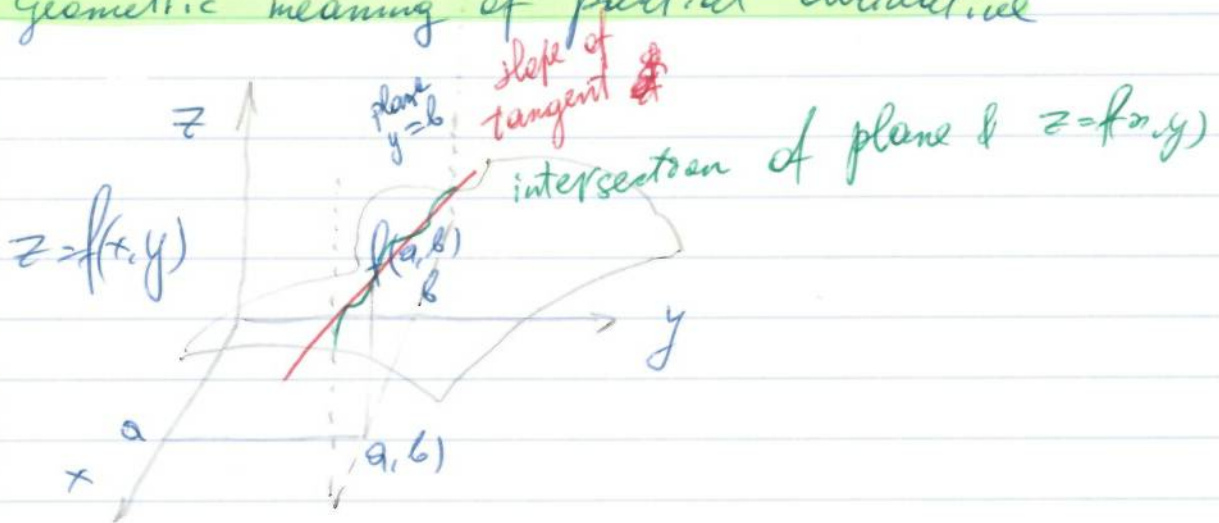 geometric meaning of partial derivative
z
plane
y=b
slope of
tangent
intersection of plane & z=f(x,y)
z=f(x,y)
f(a,b)
b
y
a
a,b)
x